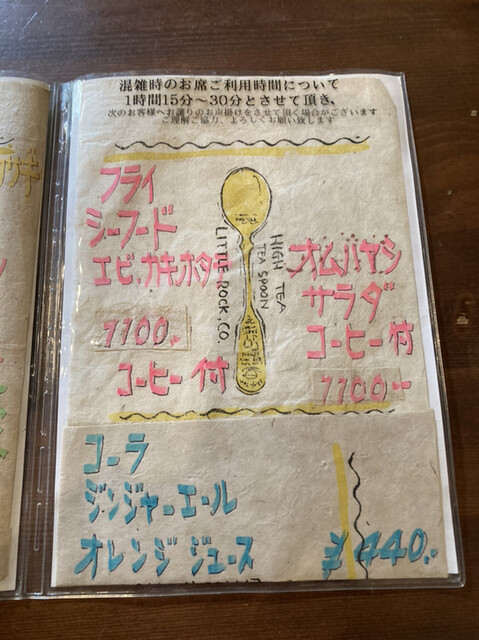 混雑時のお席ご利用時間について
1時間15分〜30分とさせて頂き、
次のお客様へお譲りのお声掛けをさせて頂く場合がございます
ご理解ご協力、よろしくお願い致します
フライ
シーフード
エビ、カキ、ホタテ
1100.-
コーヒー付
LITTLE ROCK, CO.
HIGH TEA
TEA SPOON
オムハヤシ
サラダ
コーヒー付
1100-
コーラ
ジンジャーエール
オレンジジュース
¥440.-